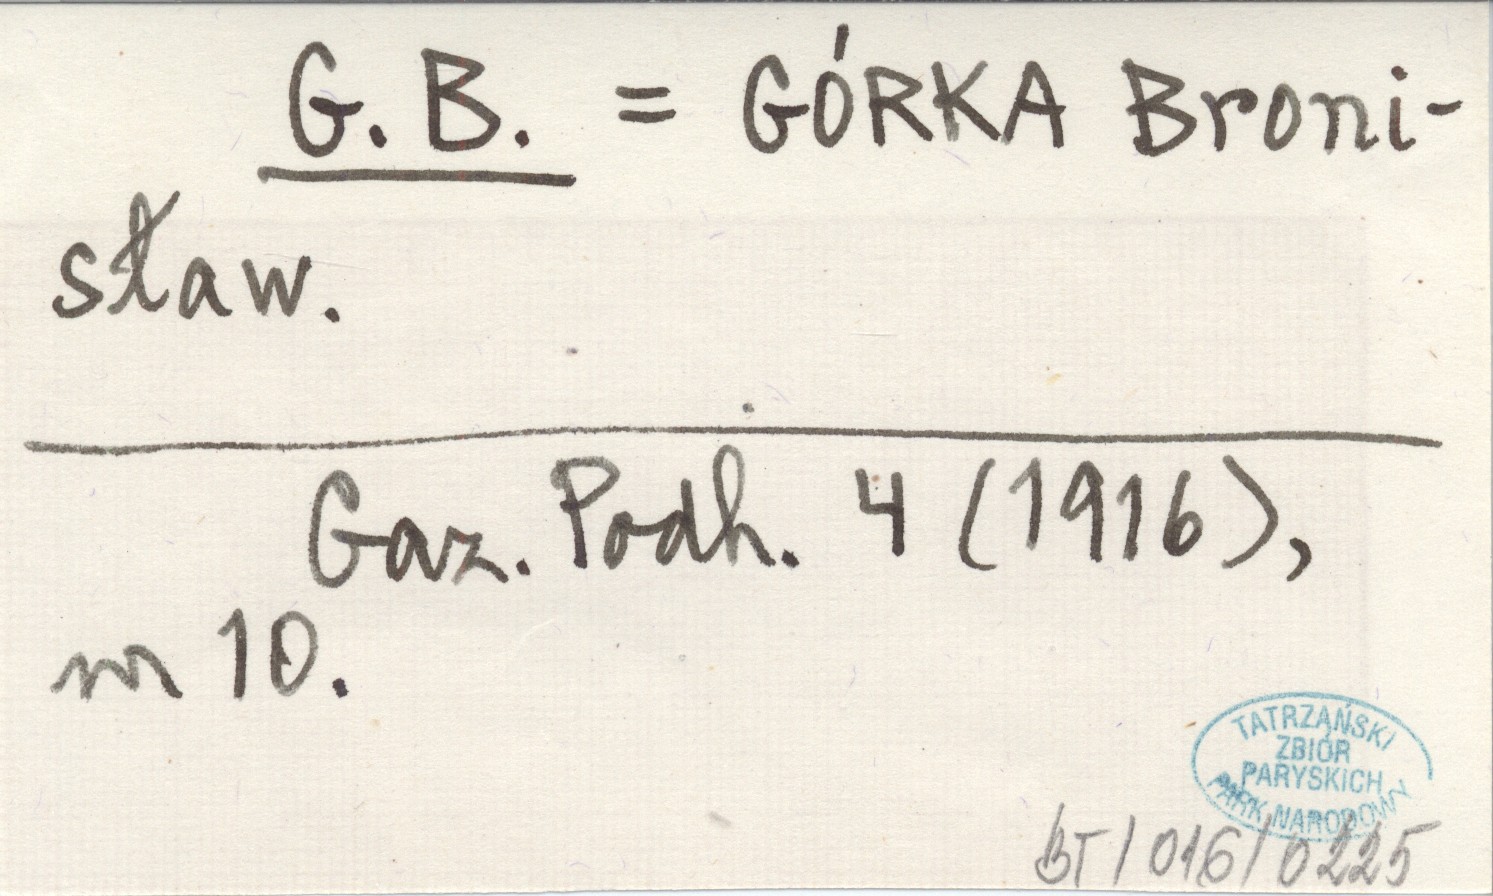 G. B. = GÓRKA Broni-
sław.
Gaz. Podh. 4 (1916),
nr 10.
TATRZAŃSKI
ZBIÓR
PARYSKICH
PARK NARODOWY
BT/016/0225